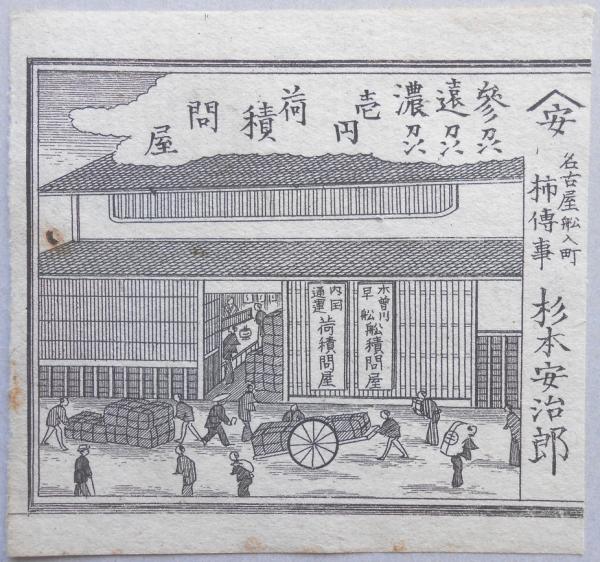 安
名古屋舩入町
柿傳事
杉本安治郎
參刕
遠刕
濃刕
壱円
荷積問屋
木曽川
早舩
舩積問屋
内国
通運
荷積問屋